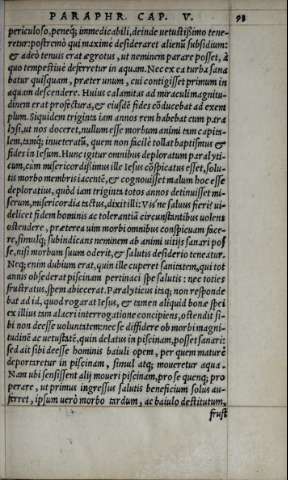 PARAPHR. CAP. V. 98
periculoso, peneq; immedicabili, deinde uetustißimo tene-
retur: postremò qui maximè desideraret alienũ subsidium:
& adeò tenuis erat ægrotus, ut neminem parare posset, à
quo tempestiuè deferretur in aquam. Nec ex ea turba sana
batur quisquam, præter unum, cui contigisset primum in
aquam descendere. Huius calamitas ad miraculi magnitu-
dinem erat profectura, & eiusdẽ fides cõducebat ad exem
plum. Siquidem triginta iam annos rem habebat cum para
lysi, ut nos doceret, nullum esse morbum animi tam capita-
lem, tamq; inueteratũ, quem non facilè tollat baptismus &
fides in Iesum. Hunc igitur omnibus deploratum paralyti-
cum, cùm misericordißimus ille Iesus cõspicatus esset, solu-
tis morbo membris iacentẽ, & cognouisset malum hoc esse
deploratius, quòd iam triginta totos annos detinuisset mi-
serum, misericordia tactus, dixit illi: Vis'ne saluus fieri? ui-
delicet fidem hominis ac tolerantiã circunstantibus uolens
ostendere, præterea uim morbi omnibus conspicuam face-
re, simulq; subindicans neminem ab animi uitijs sanari pos
se, nisi morbum suum oderit, & salutis desiderio teneatur.
Neq; enim dubium erat, quin ille cuperet sanitatem, qui tot
annis obsederat piscinam pertinaci spe salutis: nec toties
frustratus, spem abiecerat. Paralyticus itaq; non responde
bat ad id, quod rogarat Iesus, & tamen aliquid bonæ spei
ex illius tam alacri interrogatione concipiens, ostendit si-
bi non deesse uoluntatem: nec se diffidere ob morbi magni-
tudinẽ ac uetustatẽ, quin delatus in piscinam, posset sanari:
sed ait sibi deesse hominis baiuli opem, per quem maturè
deportaretur in piscinam, simul atq; moueretur aqua.
Nam ubi sensissent alij moueri piscinam, pro se quenq; pro
perare, ut primus ingressus salutis beneficium solus au-
ferret, ipsum uerò morbo tardum, ac baiulo destitutum,
frust